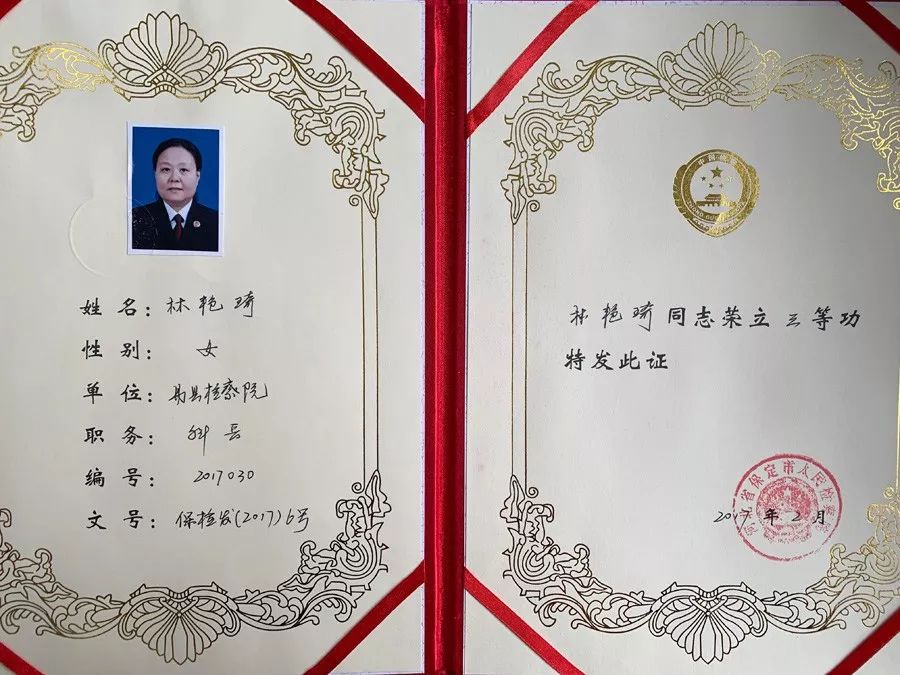 姓名：林艳琦
性别：女
单位：易县检察院
职务：科长
编号：2017030
文号：保检发(2017)6号
林艳琦同志荣立三等功
特发此证
河北省保定市人民检察院
2017年2月